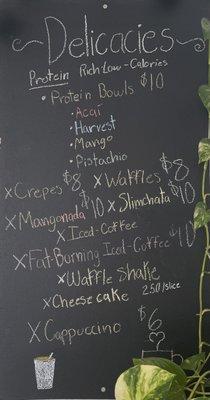 Delicacies
Protein Rich-Low-Calories
• Protein Bowls $10
• Acaí
• Harvest
• Mango
• Pistachio
x Crepes $8 x Waffles $8
x Mangonada $10 x Slimchata $10
x Iced-Coffee
x Fat-Burning Iced-Coffee $10
x Waffle Shake
x Cheesecake 2.50/slice
x Cappuccino $6